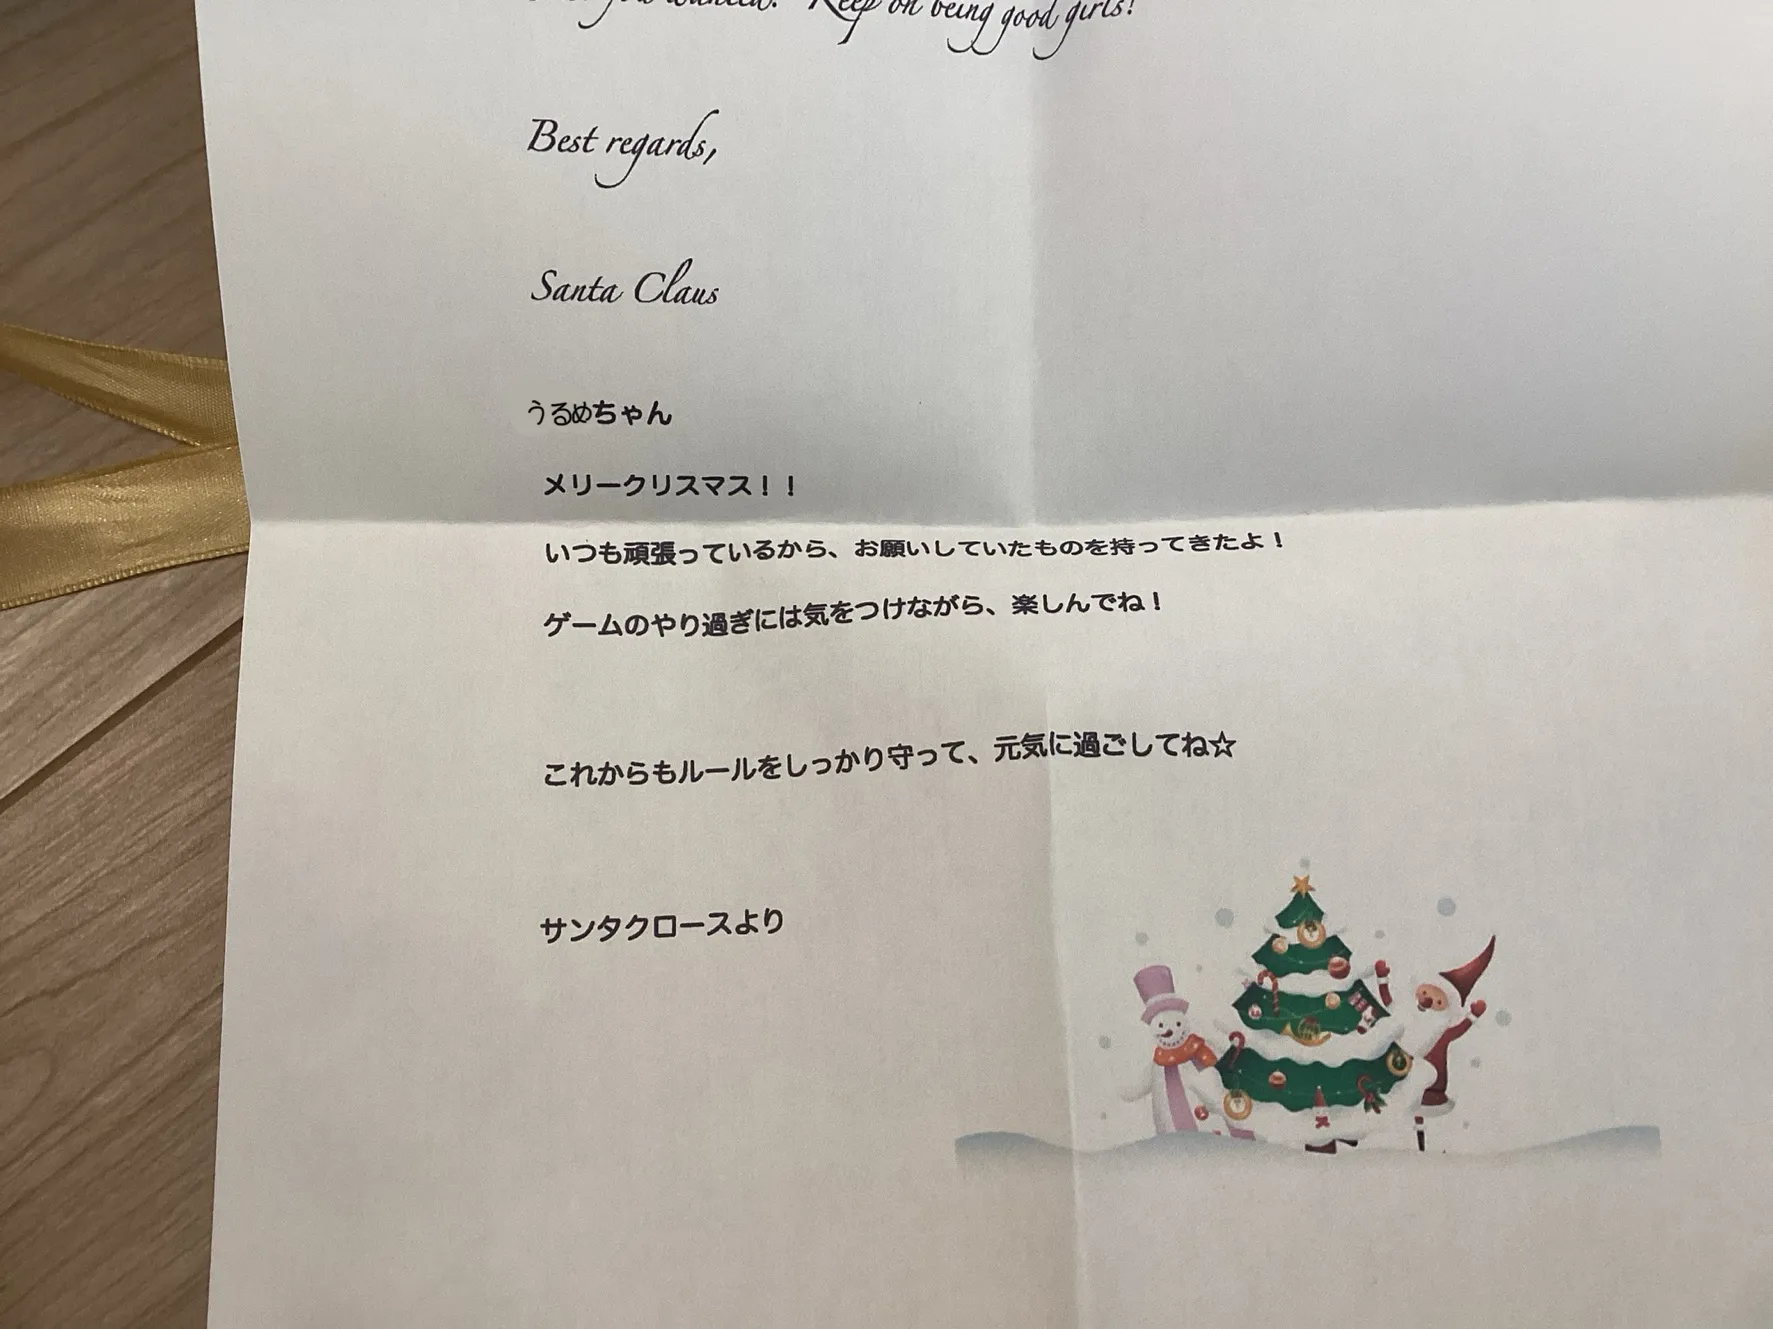 you wanted. Keep on being good girls!
Best regards,
Santa Claus
うるめちゃん
メリークリスマス！！
いつも頑張っているから、お願いしていたものを持ってきたよ！
ゲームのやり過ぎには気をつけながら、楽しんでね！
これからもルールをしっかり守って、元気に過ごしてね☆
サンタクロースより